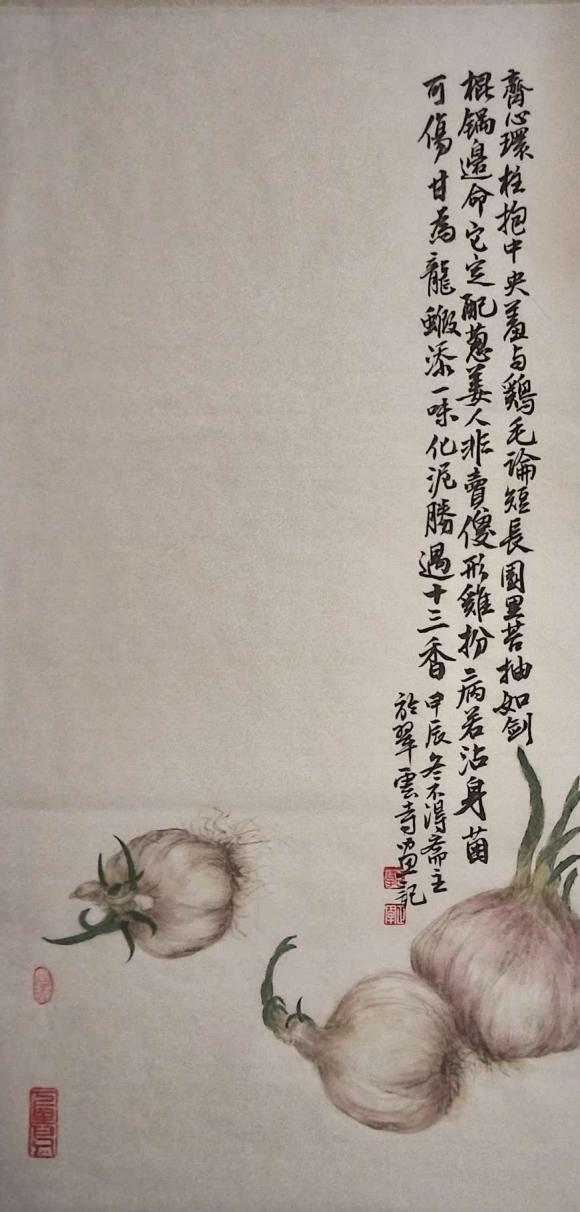 齊心環柱抱中央羞与鷄毛論短長園里苔抽如劍
棍锅邊命它定配葱姜人非賣傻形難扮病若沾身菌
可傷甘為龍蝦添一味化泥勝過十三香
甲辰冬不得斋主
於翠雲寺画記